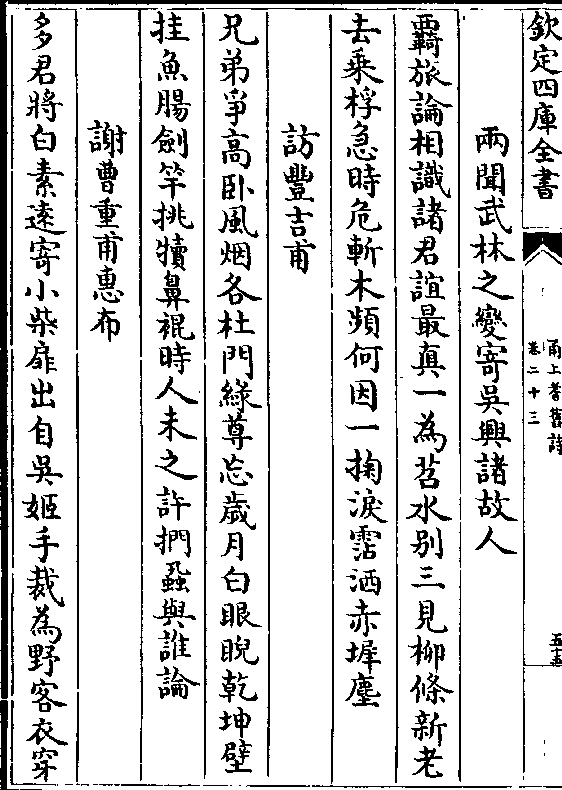 欽定四庫全書
甬上耆舊詩
卷二十三
五十五
兩聞武林之變寄吳興諸故人
覊旅論相識諸君誼最真一為苕水别三見柳條新老
去乘桴急時危斬木頻何因一掬淚霑洒赤墀塵
訪豐吉甫
兄弟爭高卧風烟各杜門緑尊忘歲月白眼睨乾坤壁
挂魚腸劍竿挑犢鼻裩時人未之許捫蝨與誰論
謝曹重甫惠布
多君將白素逺寄小柴扉出自吳姬手裁為野客衣穿